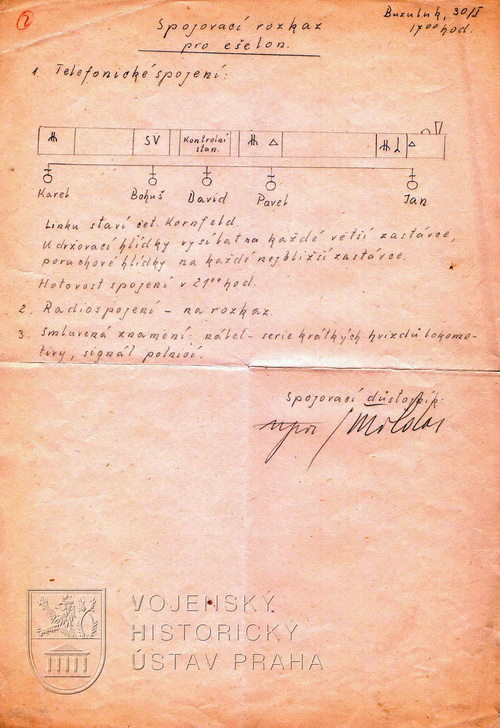 2
Buzuluk, 30/I
17⁰⁰ hod.
Spojovací rozkaz
pro ešelon.
1. Telefonické spojení:
SV
Kontrolní
stan.
Karel Bohuš David Pavel Jan
Linku staví čet. Kornfeld.
Udržovací hlídky vysílat na každé větší zastávce,
poruchové hlídky na každé nejbližší zastávce.
Hotovost spojení v 21⁰⁰ hod.
2. Radiospojení – na rozkaz.
3. Smluvená znamení: nálet – serie krátkých hvizdů lokomo-
tivy, signál polnicí.
Spojovací důstojník:
VOJENSKÝ
HISTORICKÝ
ÚSTAV PRAHA